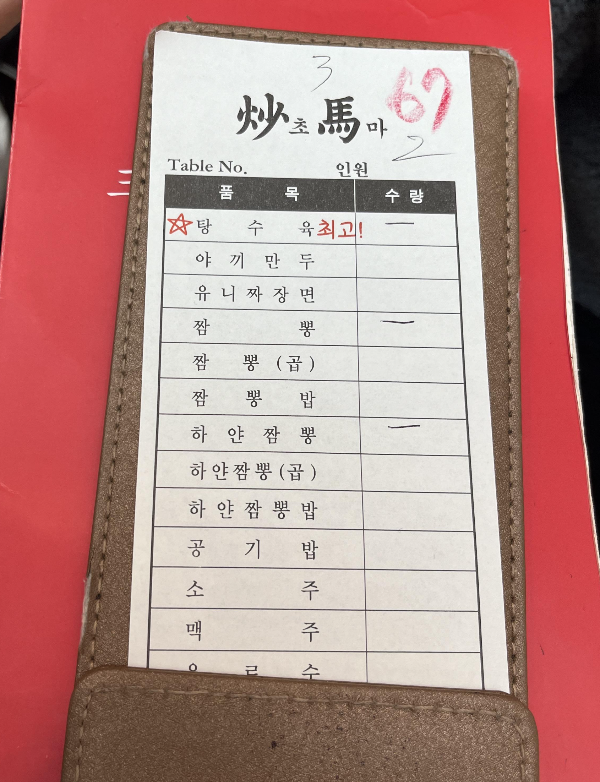 3
炒초馬마 67
Table No. 인원 2
품 목 수 량
☆탕 수 육 최고! 一
야 끼 만 두
유 니 짜 장 면
짬 뽕 一
짬 뽕 (곱)
짬 뽕 밥
하 얀 짬 뽕 一
하 얀 짬 뽕 (곱)
하 얀 짬 뽕 밥
공 기 밥
소 주
맥 주
三